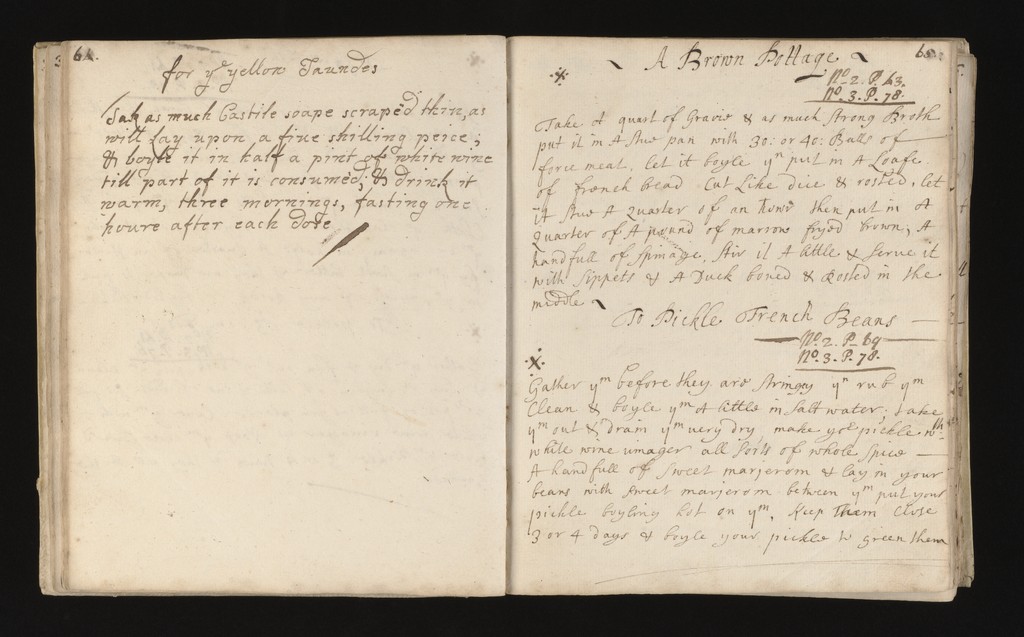 64.
for yᵉ yellow Jaundes
Tak as much Castile soape scraped thin, as
will lay upon a fine shilling peice;
& boyle it in half a pint of white wine
till part of it is consumed; & drink it
warm, three mornings, fasting one
houre after each dose
A Brown Pottage
No. 2. P. 63.
No. 3. P. 78.
Take A quart of Gravie & as much Strong Broth
put it in A Stue pan with 30: or 40: Balls of
force meat, let it boyle yⁿ put in A Loafe
of french bread Cut Like dice & rosted, let
it Stue A Quarter of an howr then put in A
Quarter of A pound of marrow fryed brown, A
handfull of Spinage, Stir it A little & Serve it
with Sippets & A Duck boned & Rosted in the
middle
To Pickle French Beans
No. 2. P. 69
No. 3. P. 78.
Gather yᵐ before they are Stringy yⁿ rub yᵐ
Clean & boyle yᵐ A little in Salt water; take
yᵐ out & drain yᵐ very dry make yoʳ pickle wᵗʰ
white wine vinager all Sorts of whole Spice
A handfull of Sweet marjerom & lay in your
beans with Sweet marjerom between yᵐ put your
pickle boyling hot on yᵐ, Keep Them Close
3 or 4 days & boyle your pickle to green them